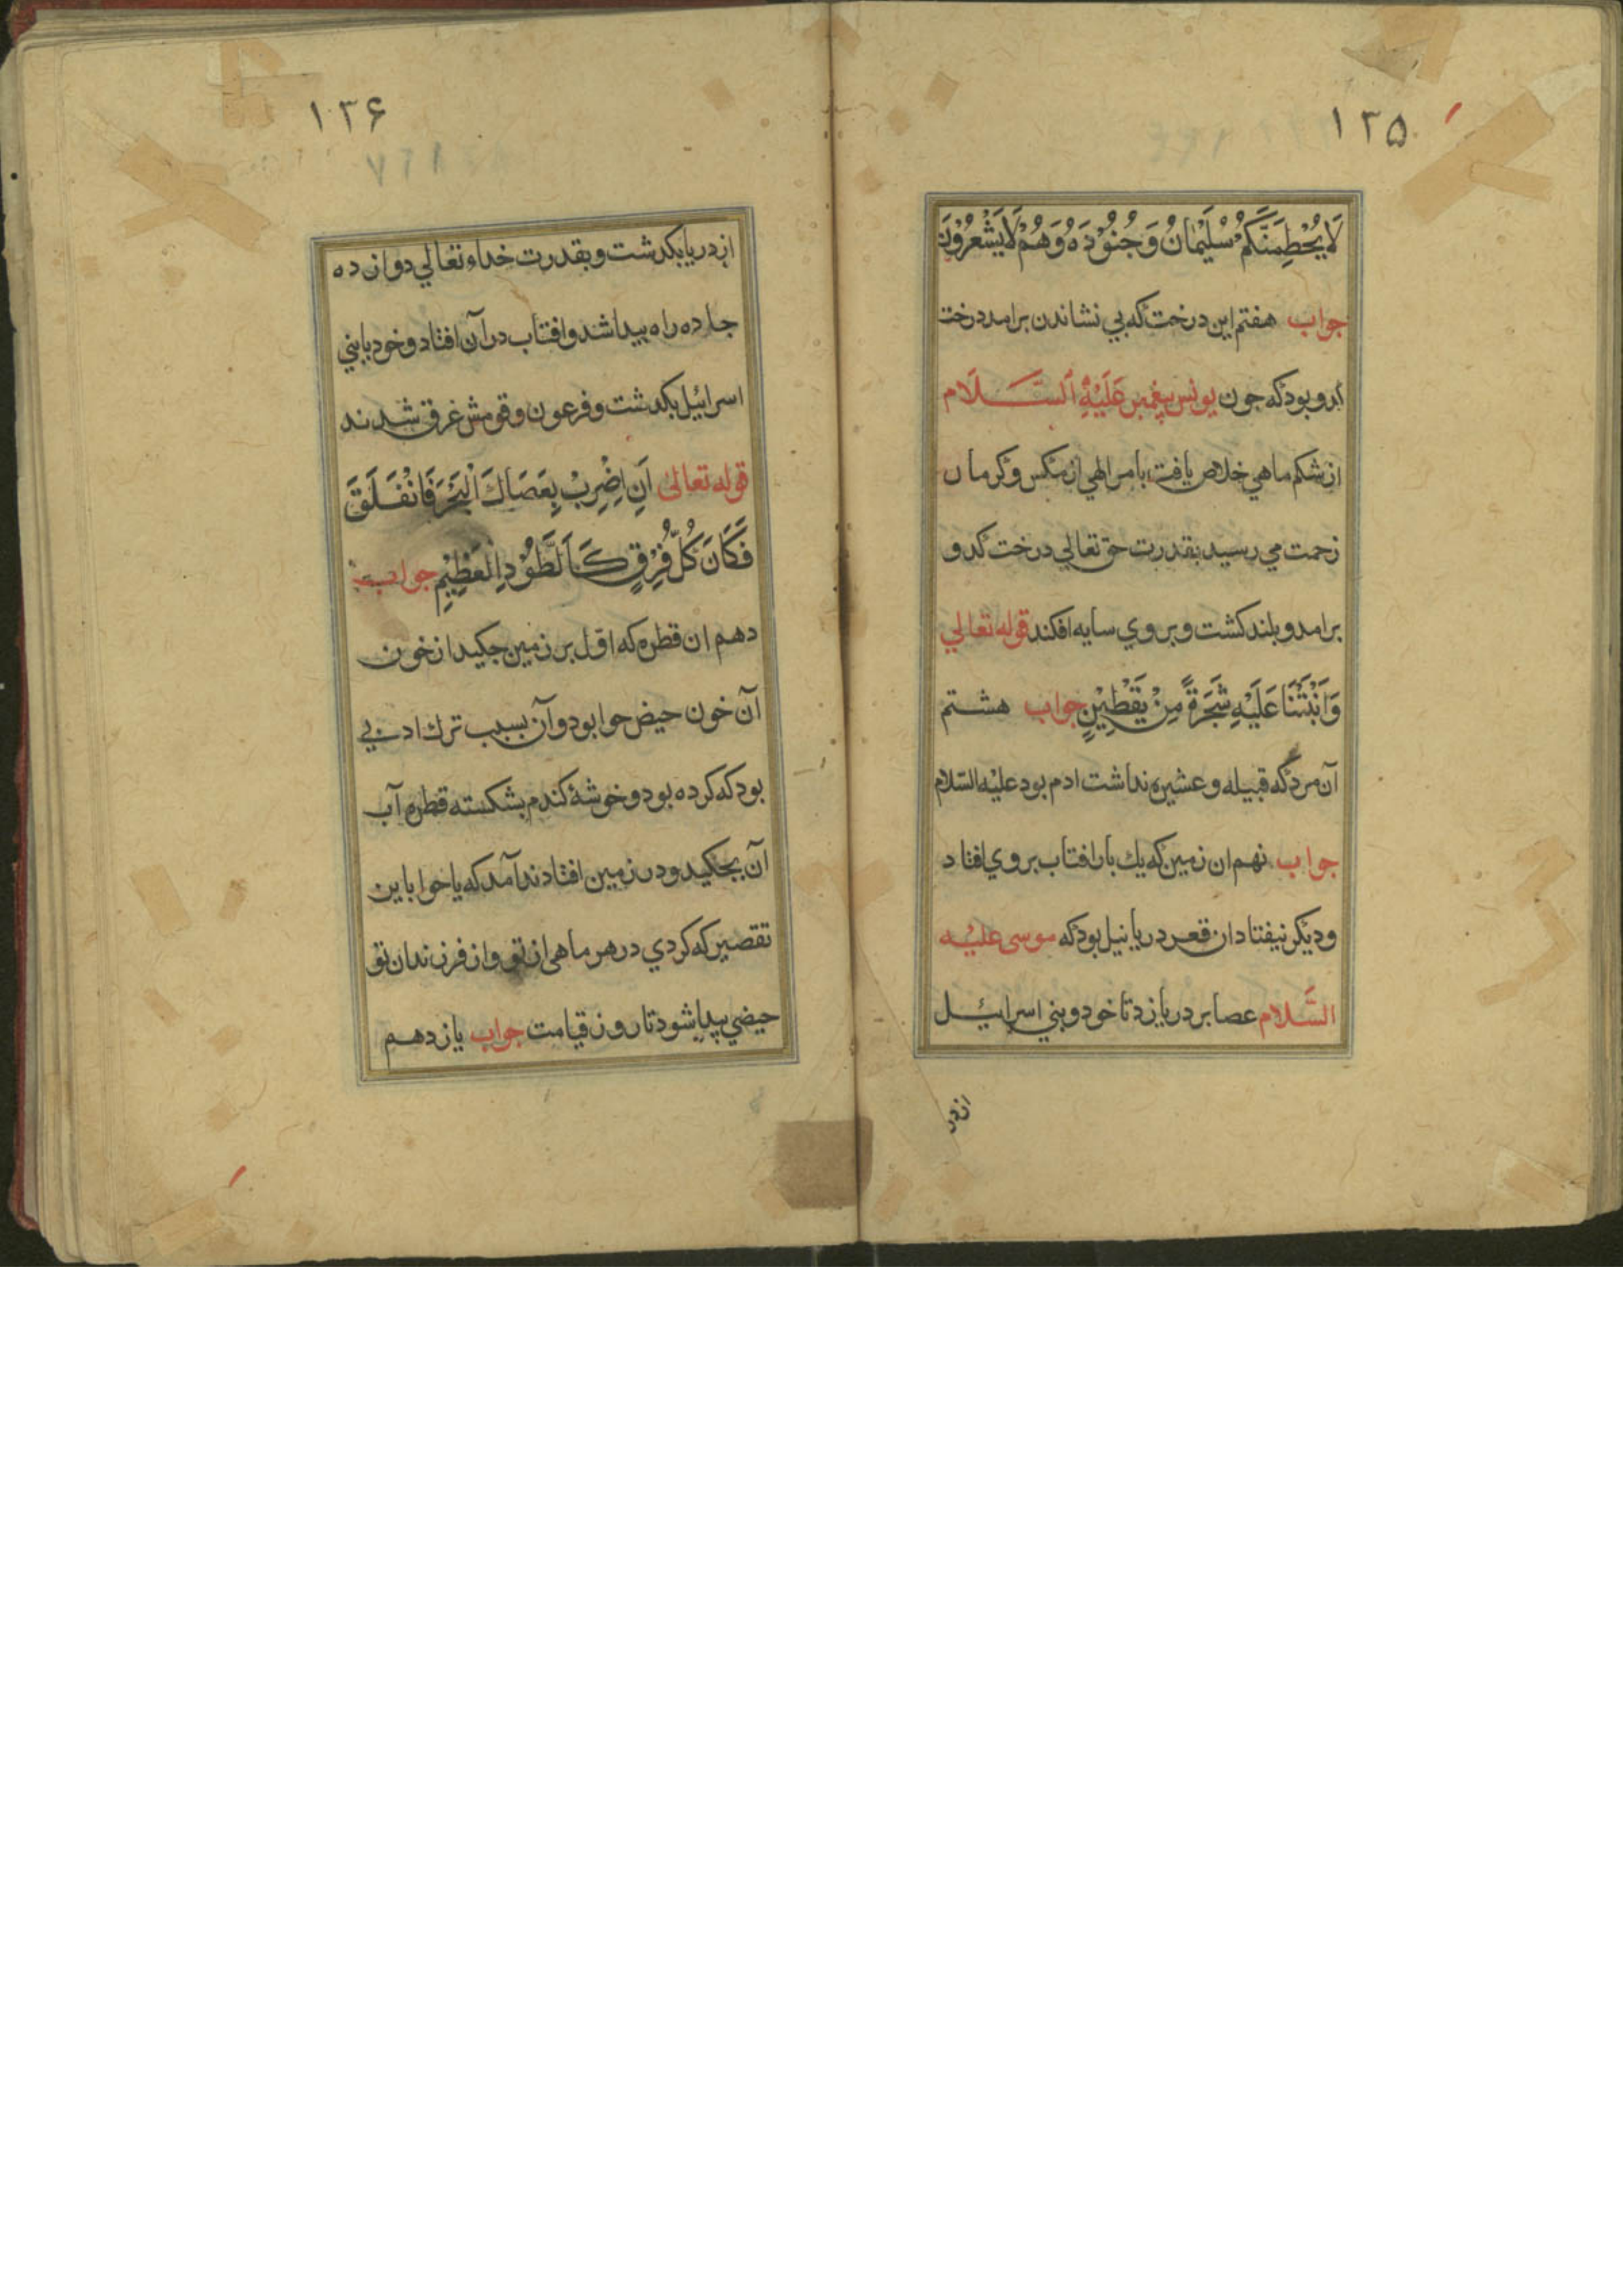 ۱۳۵
لَا يَحْطِمَنَّكُمْ سُلَيْمَانُ وَجُنُوْدَهُ وَهُمْ لَا يَشْعُرُوْنَ
جواب هفتم این درخت که بی نشاندن برامد درخت
کدو بود که جون یونس پیغمبر عَلَيْهِ اَلسَّلَام
از شکم ماهی خلاص یافت بامر الهی از مکس و کرما ن
زحمت می رسید بقدرت حق تعالی درخت کدو
برامد و بلند کشت و بر وی سایه افکند قوله تعالی
وَاَنْبَتْنَا عَلَيْهِ شَجَرَةً مِنْ يَقْطِيْنٍ جواب هشتم
آن مرد که قبیله و عشیره نداشت ادم بود علیه السّلام
جواب نهم ان زمین که یك بار افتاب بر وی افتاد
و دیکر نیفتاد ان قعر دریا نیل بود که موسی علیه
السَّلام عصا بر دریا زد تا خود و بنی اسرائیل
از در
۱۳۶
۷۶۱
از دریا بکدشت و بقدرت خداء تعالی دوازده
جا ده راه پیدا شد و افتاب در آن افتاد و خود بابنی
اسرائیل بکدشت و فرعون و قومش غرق شدند
قوله تعالی اَنِ اضْرِبْ بِعَصَاكَ الْبَحْرَ فَانْفَلَقَ
فَكَانَ كُلُّ فِرْقٍ كَالطَّوْدِ الْعَظِيْمِ جواب
دهم ان قطره که اوّل بر زمین جکید از خون
آن خون حیض حوا بود و آن بسبب ترك ادبی
بود که کرده بود و خوشهٔ کندم بشکسته قطره آب
آن بجکید و در زمین افتاد ندا آمد که یا حوا باین
تقصیر که کردی در هر ماهی از تو و از فرزندان تو
حیضی پیدا شود تا روز قیامت جواب یازدهم